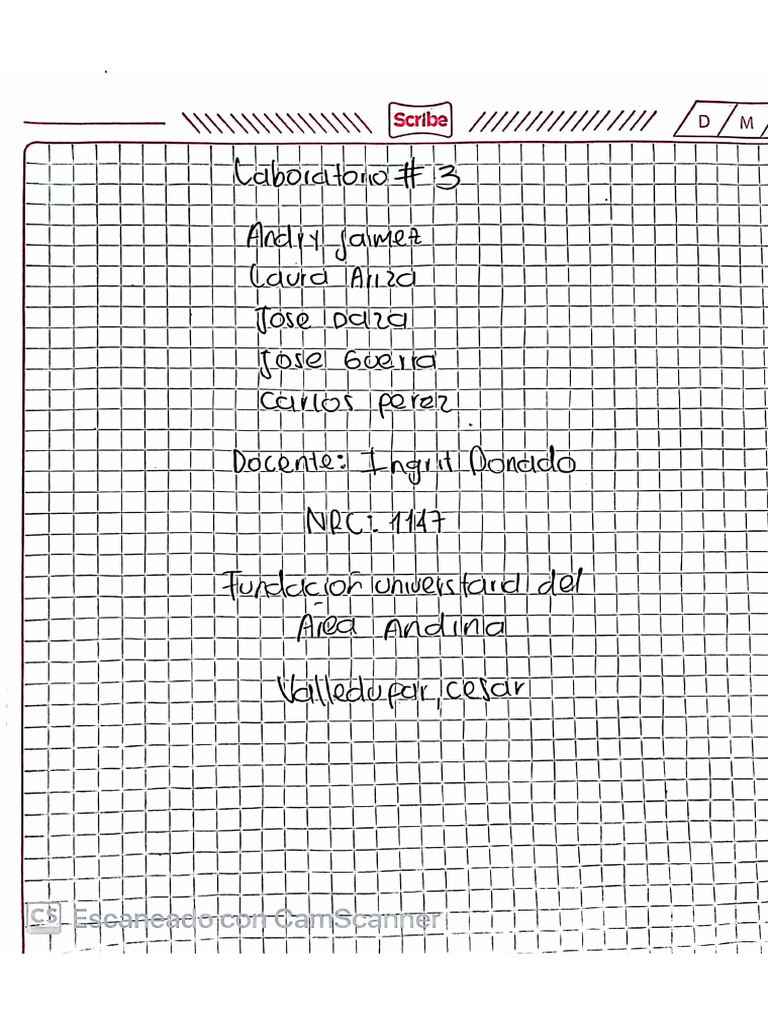 Scribe
D M
Laboratorio # 3
Andry Jaimez
Laura Ariza
Jose Daza
Jose Guerra
Carlos perez
Docente: Ingrit Donado
NRC: 1147
Fundación universitaria del
Área Andina
Valledupar, cesar
CS Escaneado con CamScanner